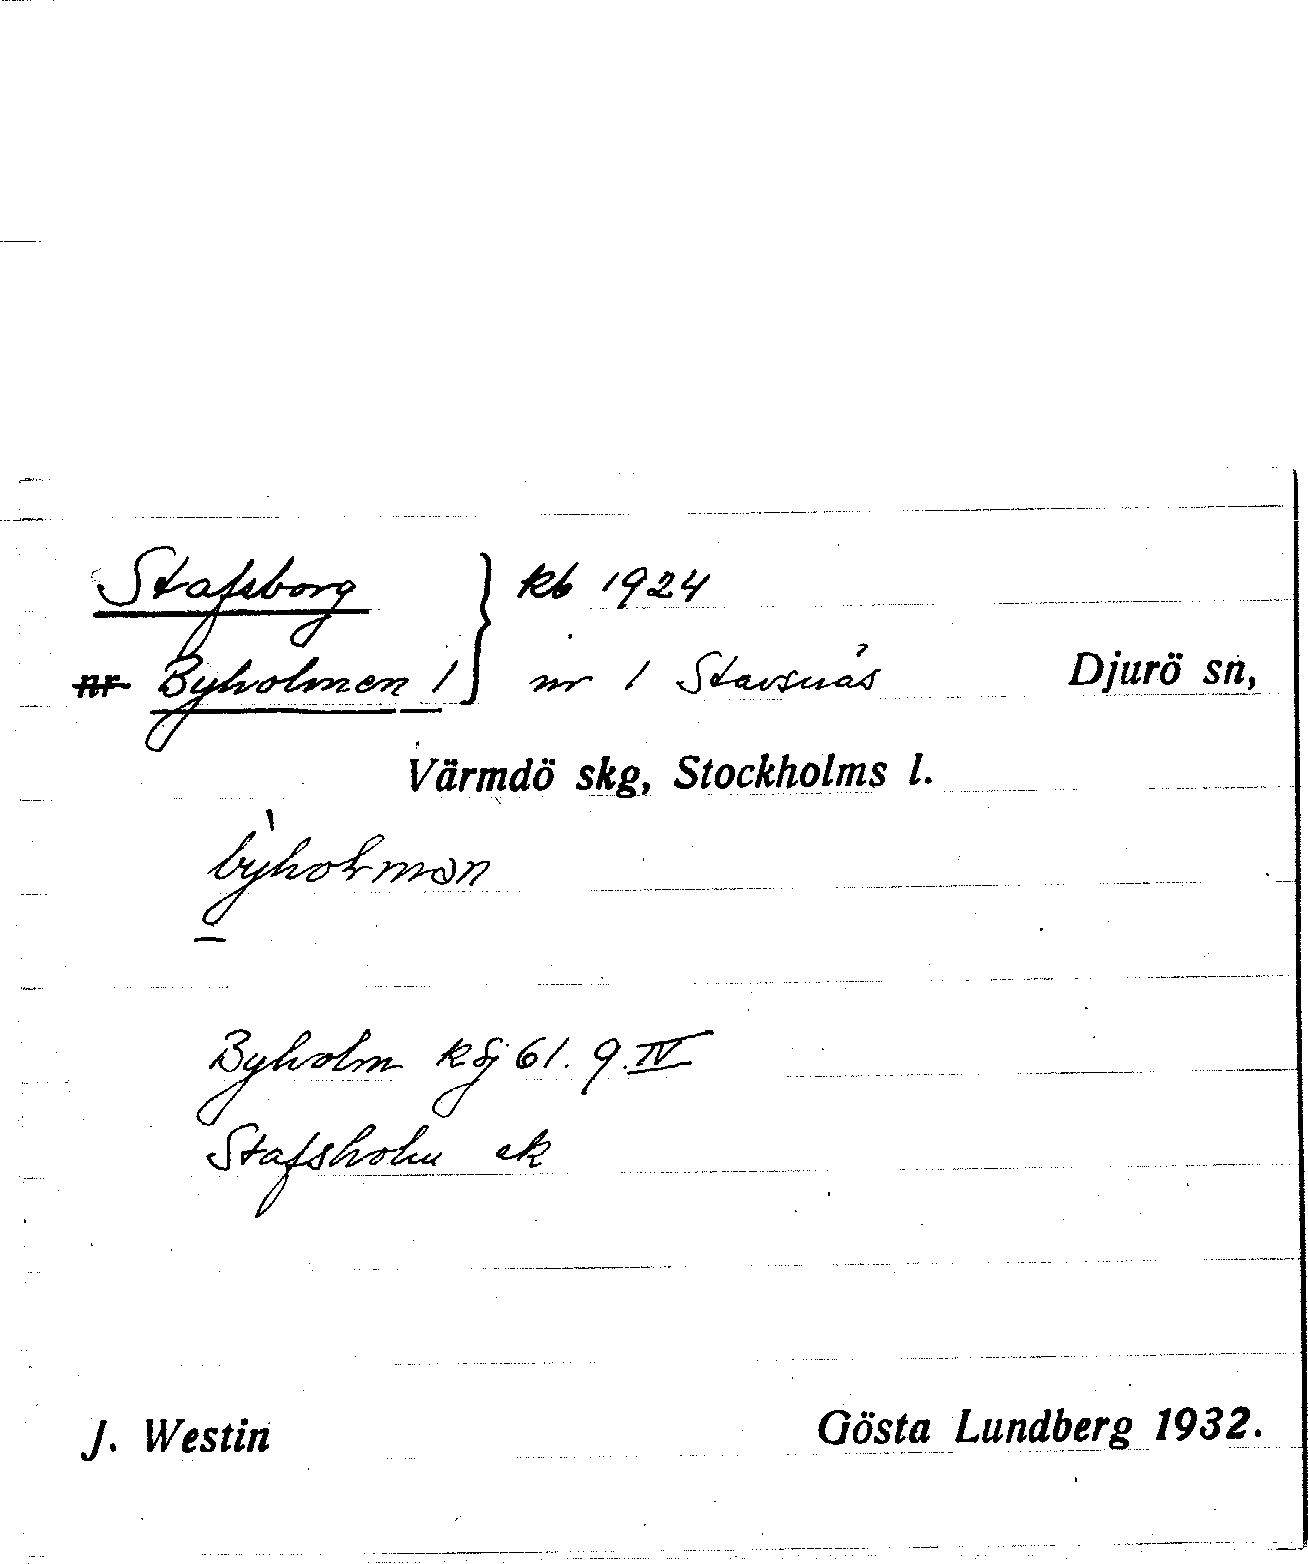 Stafsborg } kb 1924
nr Byholmen 1 } nr 1 Stavsnäs Djurö sn,
Värmdö skg, Stockholms l.
Byholm kgj 61. 9. IV
Stafsholm ek
J. Westin Gösta Lundberg 1932.